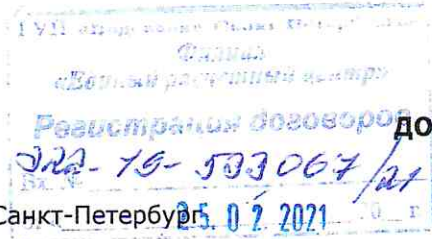 ГУП «Водоканал Санкт-Петербурга»
Филиал
«Единый расчетный центр»
Регистрация договоров
ДО
-19-533067/21
Вх. №
Санкт-Петербург 25. 02 2021 г